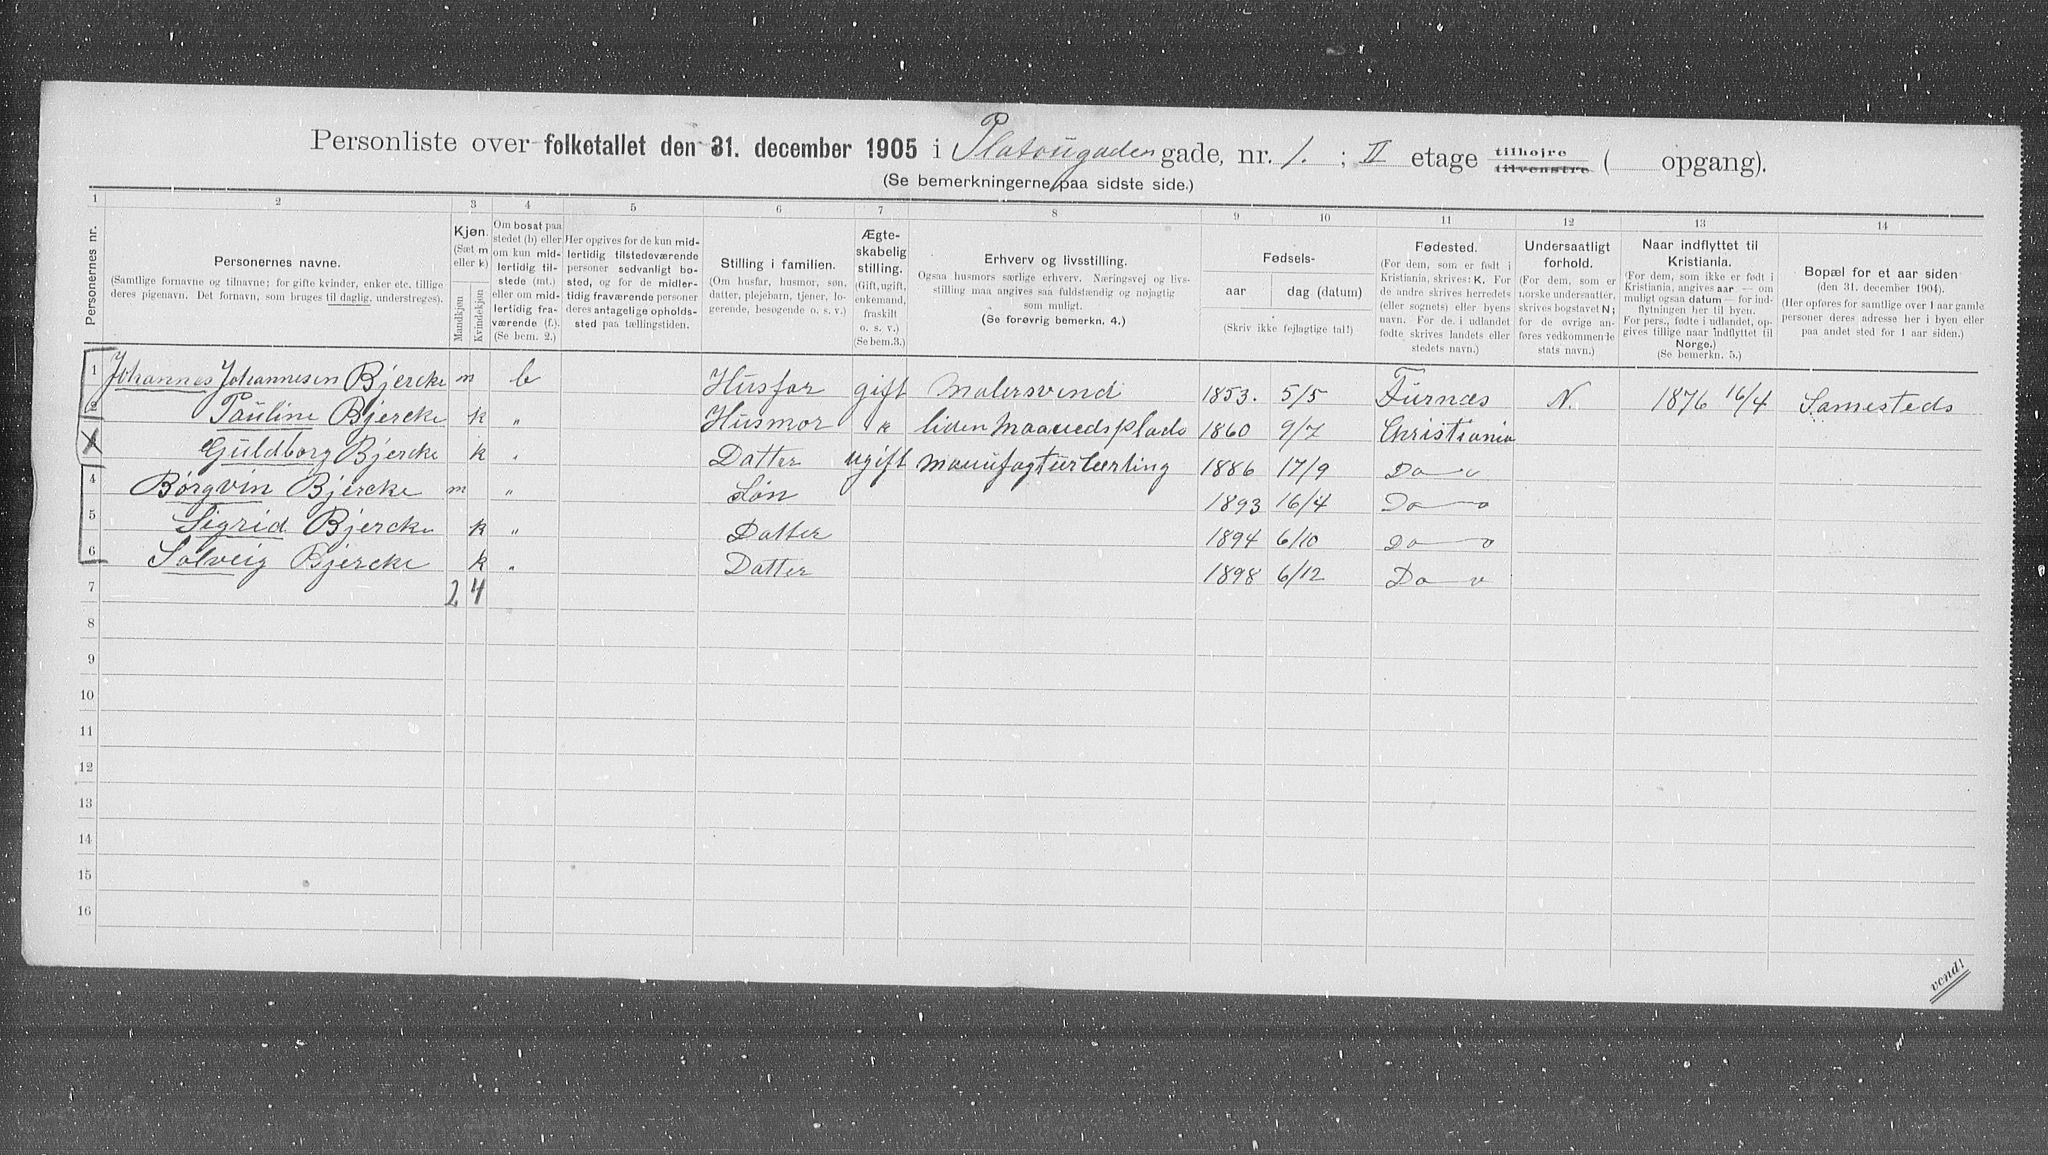 Personliste over folketallet den 31. december 1905 i Platougaden gade, nr. 1. ; II etage tilhøjre tilvenstre ( opgang).
(Se bemerkningerne paa sidste side.)
1 2 3 4 5 6 7 8 9 10 11 12 13 14
Personernes nr.
Personernes navne.
(Samtlige fornavne og tilnavne; for gifte kvinder, enker etc. tillige deres pigenavn. Det fornavn, som bruges til daglig, understreges).
Kjøn.
(Sæt m eller k)
Mandkjøn
Kvindekjøn
Om bosat paa stedet (b) eller om kun midlertidig tilstede (mt.) eller om midlertidig fraværende (f.). (Se bem. 2.)
Her opgives for de kun midlertidig tilstedeværende personer sedvanligt bosted, og for de midlertidig fraværende personer deres antagelige opholdssted paa tællingstiden.
Stilling i familien.
(Om husfar, husmor, søn, datter, plejebarn, tjener, logerende, besøgende o. s. v.)
Ægteskabelig stilling.
(Gift, ugift, enkemand, fraskilt o. s. v.)
(Se bem.3.)
Erhverv og livsstilling.
Ogsaa husmors særlige erhverv. Næringsvej og livsstilling maa angives saa fuldstændig og nøjagtig som muligt.
(Se forøvrig bemerkn. 4.)
Fødsels-
aar dag (datum)
(Skriv ikke fejlagtige tal!)
Fødested.
(For dem, som er født i Kristiania, skrives: K. For de andre skrives herredets (eller sognets) eller byens navn. For de i udlandet fødte skrives landets eller stedets navn.)
Undersaatligt forhold.
(For dem, som er norske undersaatter, skrives bogstavet N; for de øvrige anføres vedkommende stats navn.)
Naar indflyttet til Kristiania.
(For dem, som ikke er født i Kristiania, angives aar — om muligt ogsaa datum — for indflytningen her til byen. For pers., fødte i udlandet, opgives tillige naar indflyttet til Norge.)
(Se bemerkn. 5.)
Bopæl for et aar siden
(den 31. december 1904).
(Her opføres for samtlige over 1 aar gamle personer deres adresse her i byen eller paa andet sted for 1 aar siden.)
1 Johannes Johannesen Bjercke m b Husfar gift Malersvend 1853. 5/5 Furnæs N. 1876 16/4 Samesteds
2 Pauline Bjercke k " Husmor " liden Maanedsplads 1860 9/7 Christiania
Guldborg Bjercke k " Datter ugift Manufagturlærling 1886 17/9 Do
4 Børgvin Bjercke m " Søn 1893 16/4 Do
5 Sigrid Bjercke k " Datter 1894 6/10 Do
6 Solveig Bjercke k " Datter 1898 6/12 Do
7 2 4
8
9
10
11
12
13
14
15
16
vend!